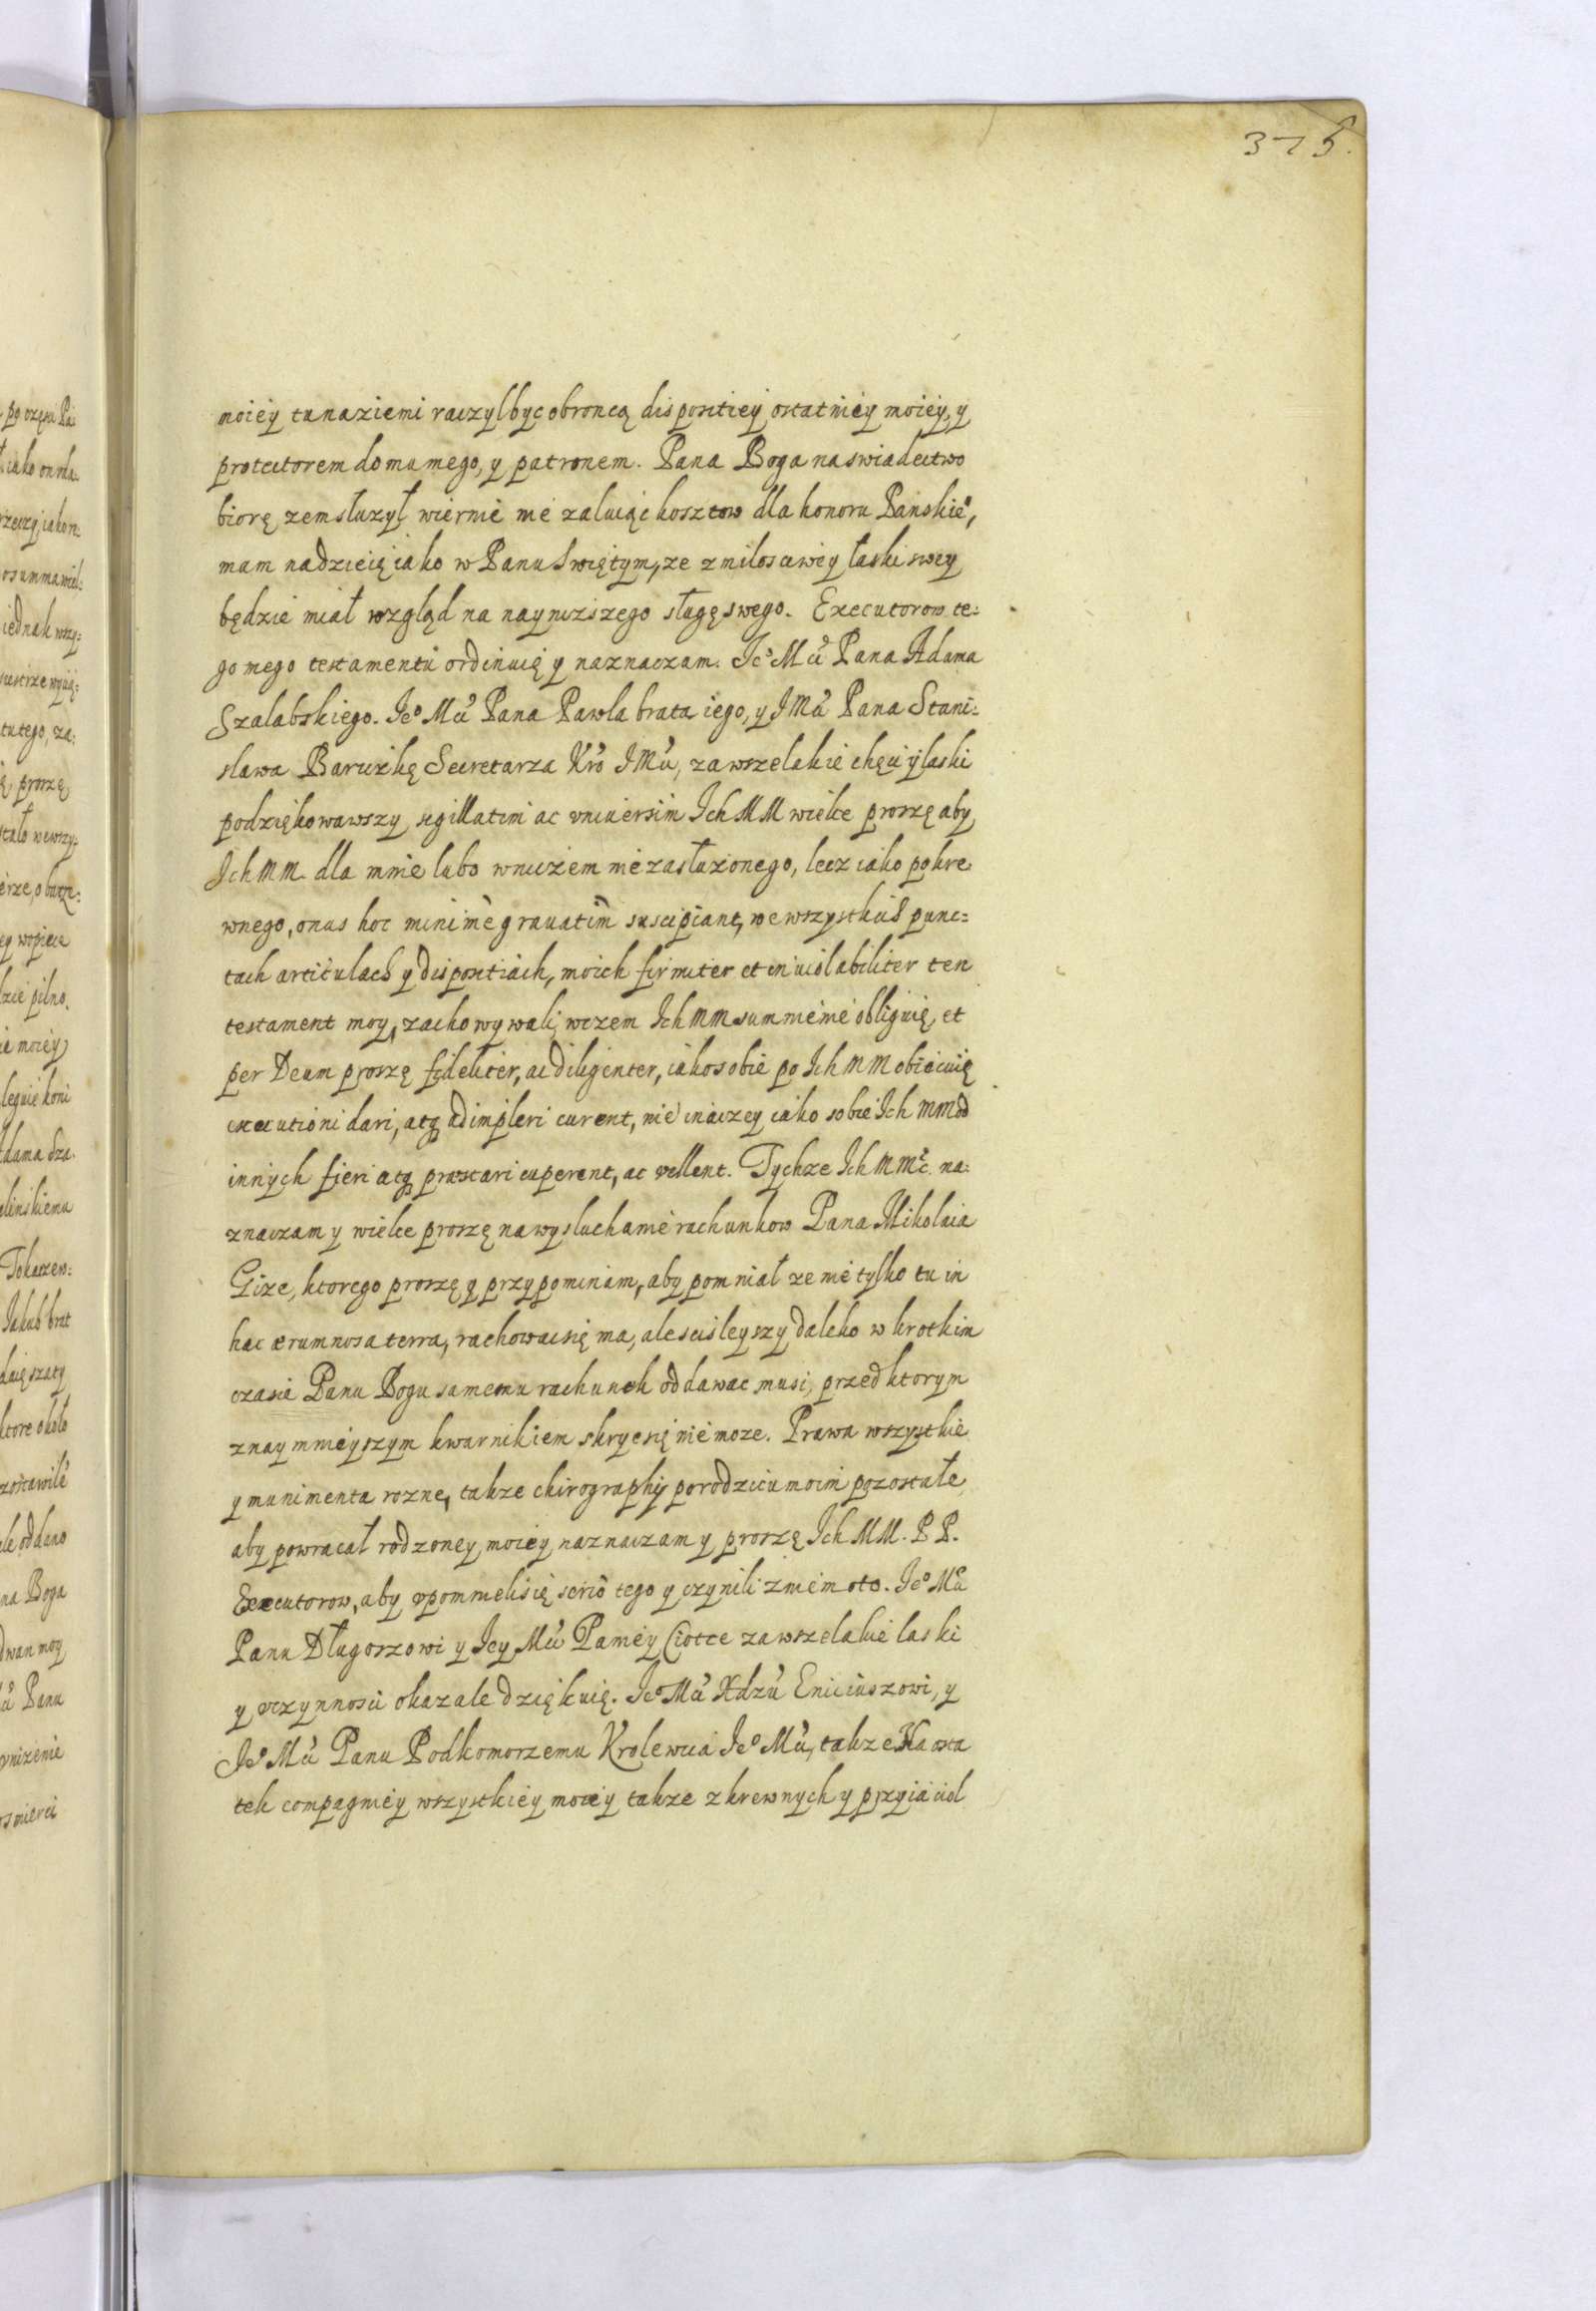 375.
moiey tu na ziemi raczył byc obroncą dispositiey ostatniey moiey, y
protectorem domu mego, y patronem. Pana Boga na swiadectwo
biorę zem słuzył wiernie nie załuiąc kosztow dla honoru Panskie⁰,
mam nadzieię iako w Panu Swiętym, ze z miłosciwey łaski swey
będzie miał wzgląd na nayniższego sługę swego. Executorow te:
go mego testamentu ordinuię y naznaczam. Je⁰ Mći Pana Adama
Szalabskiego. Je⁰ Mći Pana Pawła brata iego, y JMći Pana Stani:
sława Baruzkę Secretarza Kró JMći, za wszelakie chęci y łaski
podziękowawszy sigillatim ac vniuersim Ich MM wielce proszę aby
Ich MM. dla mnie lubo w niczem nie zasłużonego, lecz iako pokre
wnego, onus hoc minimè grauatim suscipiant, we wszystkich punc=
tach articulach y dispositiach, moich firmiter et inuiolabiliter ten
testament moy, zachowywali, w czem Ich MM summienie obliguię, et
per Deum proszę fideliter, ac diligenter, iako sobie po Ich MM obiecuię
executioni dari, atq3 adimpleri curent, nie inaczey iako sobie Ich MM od
innych fieri atq3 præstari cuperent, ac vellent. Tychze Ich MMć na:
znaczam y wielce proszę na wysłuchanie rachunkow Pana Mikołaia
Gize, ktorego proszę y przypominam, aby pomniał ze nie tylko tu in
hac ærumnosa terra, rachowac się ma, ale scisleyszy daleko w krotkim
czasie Panu Bogu samemu rachunek oddawac musi, przed ktorym
z naymnieyszym kwarnikiem skryc się nie moze. Prawa wszystkie
y munimenta rozne, takze chirographij po rodzicu moim pozostałe
aby powracał rodzoney moiey naznaczam y proszę Ich MM. PP.
Executorow, aby vpomnieli się seriò tego y czynili z niem oto. Je⁰ Mći
Panu Długoszowi y Jey Mći Paniey Ciotce za wszelakie łaski
y vczynnosci okazałe dziękuię. Je⁰ Mći Xdzu Eniciuszowi, y
Je⁰ Mći Panu Podkomorzemu Krolewica Je⁰ Mći, takze Na osta
tek compagniey wszystkiey moiey takze z krewnych y przyiaciol